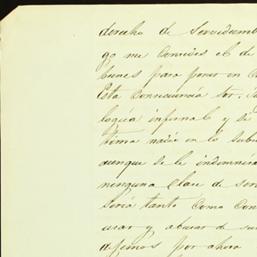 derecho de Servidumb
go me Convieses el d
bunes para poner en C
Esta Consecuencia Sor. S
logica infernal y si
tima nadie en lo Sub
aunque se le indemnis
ninguna Clase de ser
Seria tanto Como Con
usar y abusar de su
dejemos por ahora